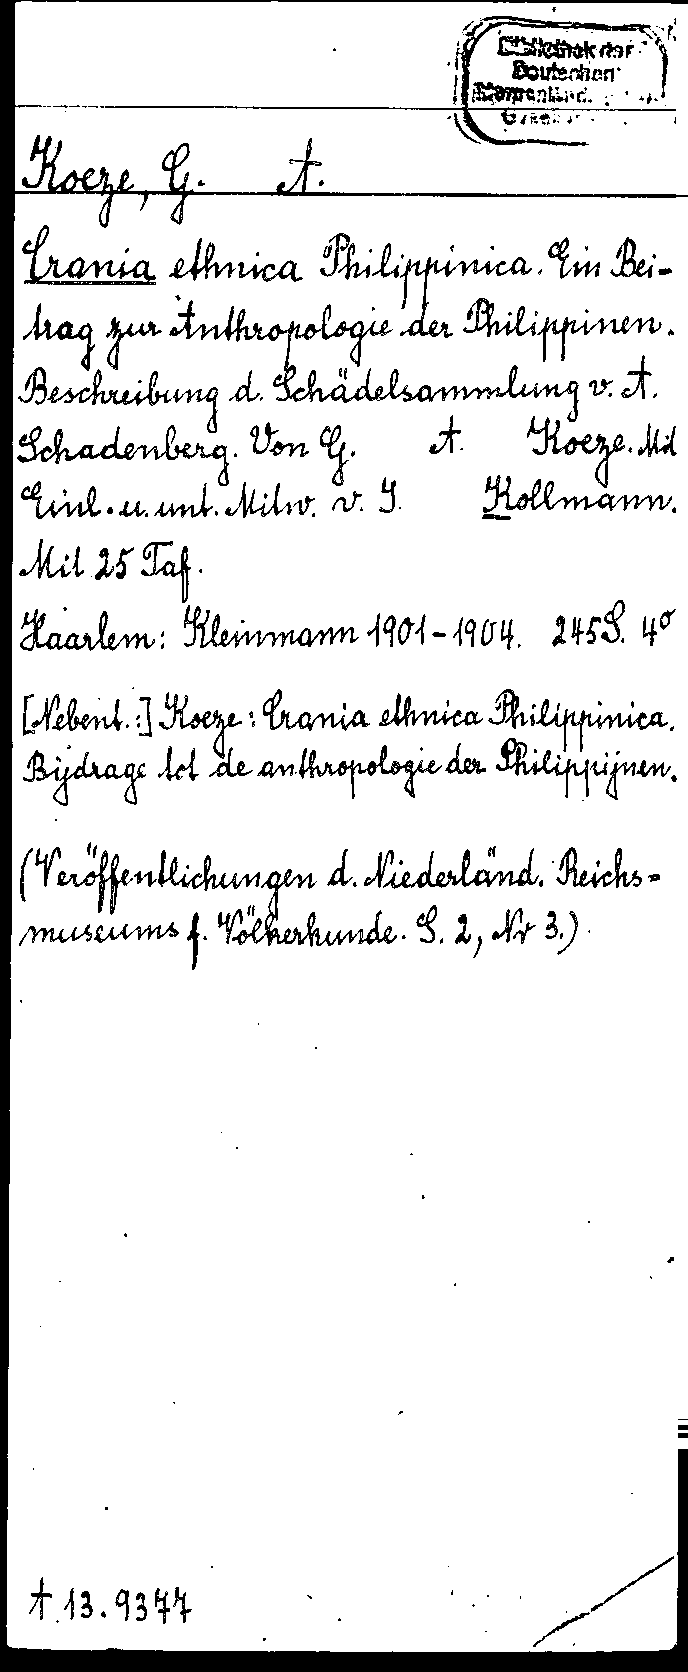 Bibliothek der
Deutschen
Koeze, G. A.
Crania ethnica Philippinica. Ein Bei-
trag zur Anthropologie der Philippinen.
Beschreibung d. Schädelsammlung v. A.
Schadenberg. Von G. A. Koeze. Mit
Einl. u. unt. Mitw. v. J. Kollmann.
Mit 25 Taf.
Haarlem: Kleinmann 1901-1904. 245 S. 4°
[Nebent.:] Koeze: Crania ethnica Philippinica.
Bijdrage tot de anthropologie der Philippijnen.
(Veröffentlichungen d. Niederländ. Reichs-
museums f. Völkerkunde. S. 2, Nr 3.)
A 13.9377